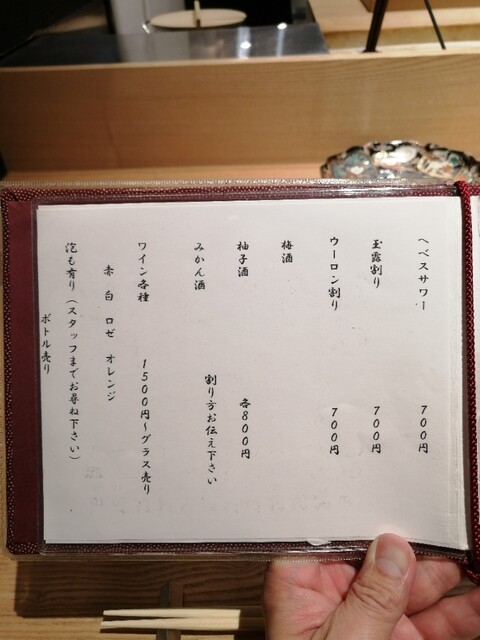 へべスサワー　700円
玉露割り　700円
ウーロン割り　700円
梅酒
柚子酒　各800円
みかん酒　割り方お伝え下さい
ワイン各種　1500円～グラス売り
赤　白　ロゼ　オレンジ
泡も有り（スタッフまでお尋ね下さい）
ボトル売り